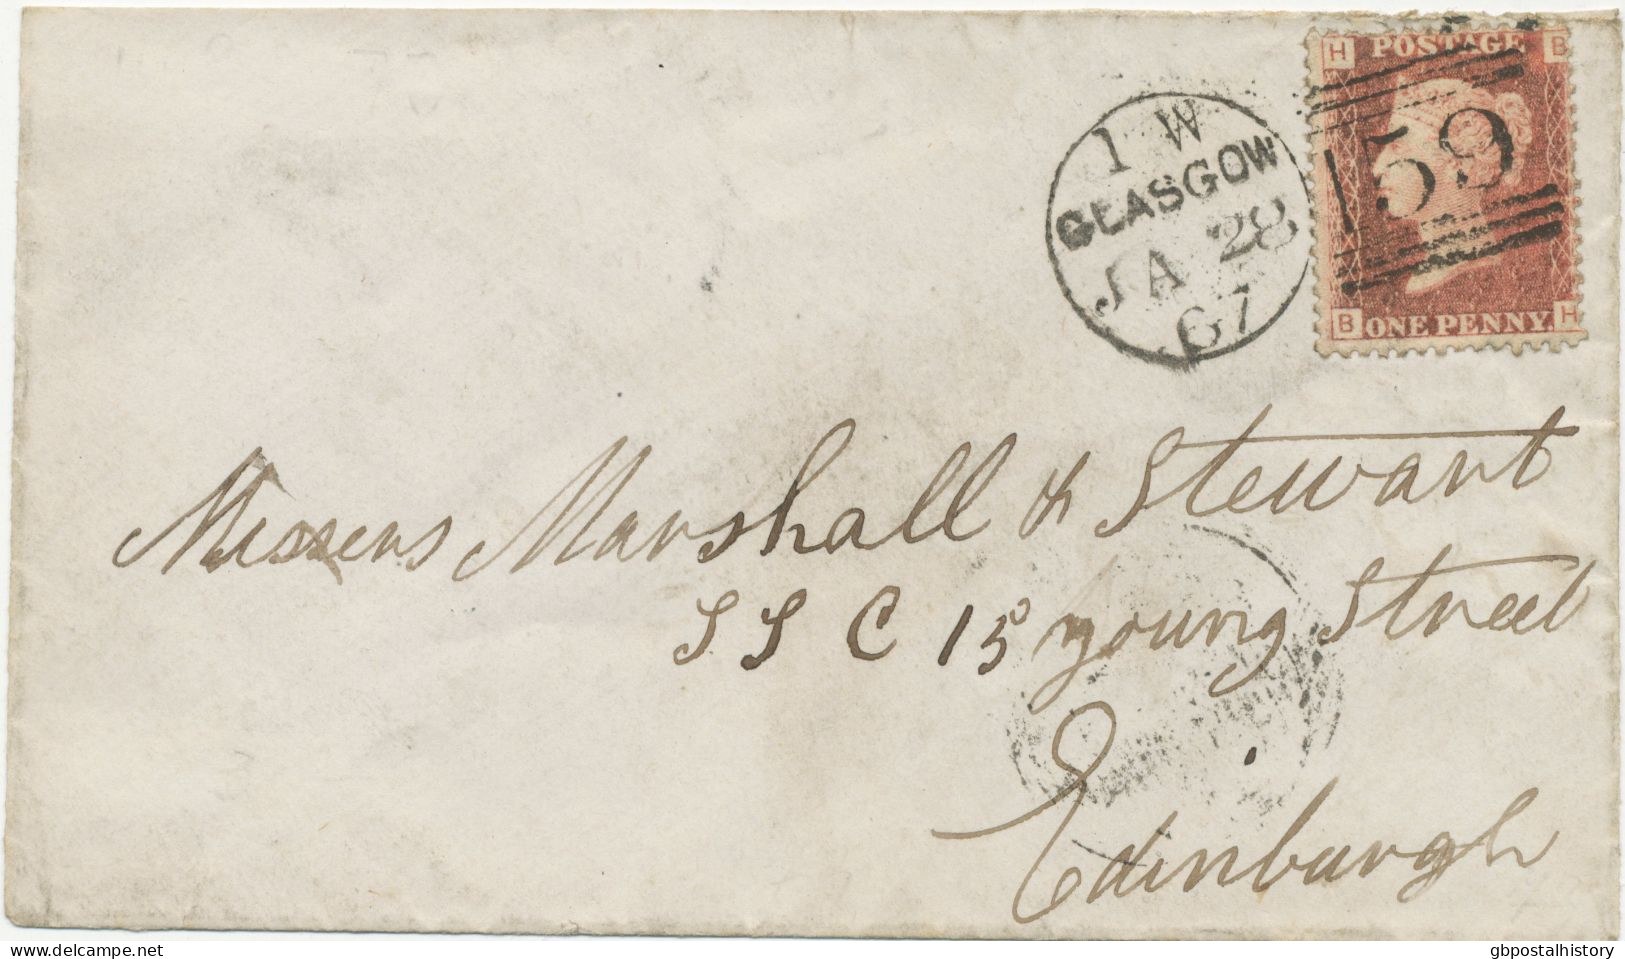 H POSTAGE B
159
B ONE PENNY. H
1 W
GLASGOW
JA 28
67
Messers Marshall & Stewart
S S C 15 Young Street
Edinburgh
www.delcampe.net
gbpostalhistory